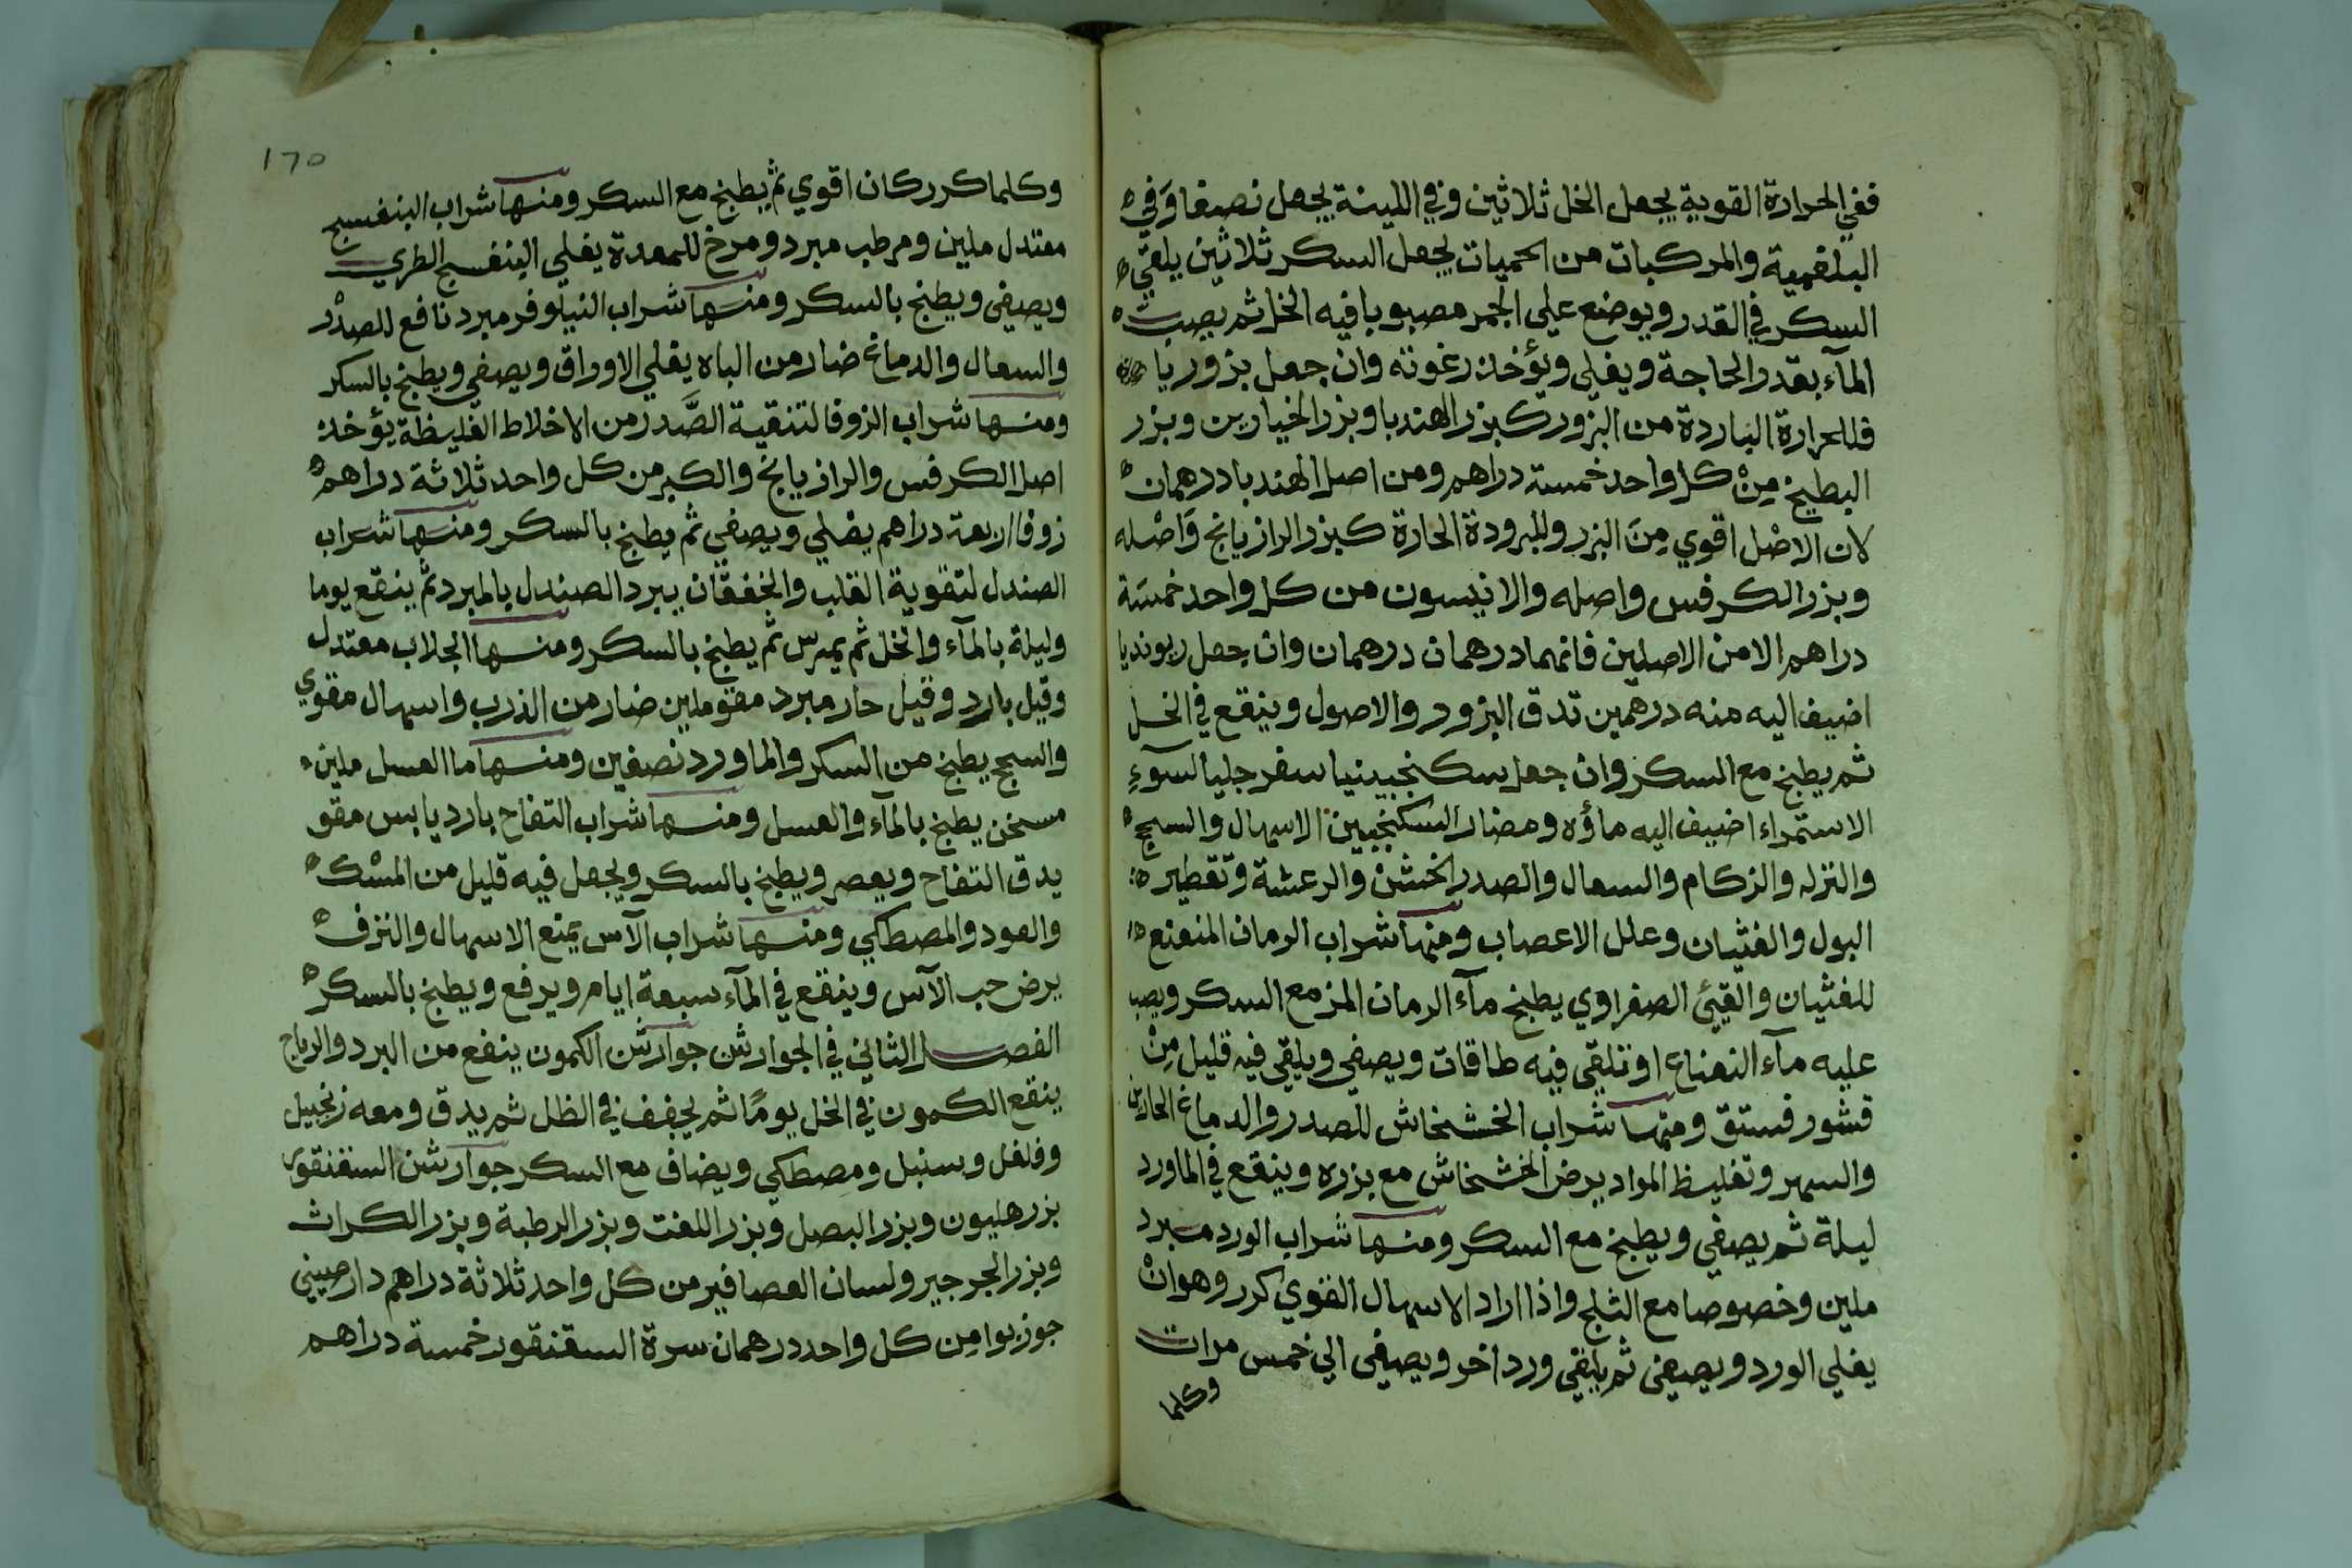 ففي الحرارة القوية يجعل الخل ثلاثين وفي اللينة يجعل نصفا وَفي
البلغمية والمركبات من الحميات يجعل السكر ثلاثين يلقي
السكر في القدر ويوضع علي الجمر مصبوبا فيه الخل ثم يصب
المآء بقدر الحاجة ويغلي ويؤخذ رغوته وان جعل بزوريا
فللحرارة الباردة من البزور كبزر الهندبا وبزر الخيارين وبزر
البطيخ مِنْ كل واحد خمسة دراهم ومن اصل الهندبا درهمان
لان الاصْل اقوي مِنَ البزر وللبرودة الحارة كبزر الرازيانج وَاصْله
وبزر الكرفس واصله والانيسون من كل واحد خمسَة
دراهم الا من الاصلين فانهما درهمان درهمان وان جعل ريونديا
اضيف اليه منه درهمين تدق البزور والاصول وينقع في الخل
ثم يطبخ مع السكر وان جعل سكنجبينيا سفرجليا لسوٓءِ
الاستمراء اضيف اليه ماؤه ومضار السكنجبين الاسهال والسحج
والنزله والزكام والسعال والصدر الخشن والرعشة وتقطير
البول والغثيان وعلل الاعصاب ومنها شراب الرمان المنعنع
للغثيان والقيئ الصفراوي يطبخ مآء الرمان المز مع السكر ويصب
عليه مآء النعناع او تلقي فيه طاقات ويصفي ويلقي فيه قليل مِنْ
قشور فستق ومنها شراب الخشخاش للصدر والدماغ الحارين
والسهر وتغليظ المواد يرض الخشخاش مع بزره وينقع في الماورد
ليلة ثم يصفي ويطبخ مع السكر ومنها شراب الورد مبرد
ملين وخصوصا مع الثلج واذا اراد الاسهال القوي كرر وهو انْ
يغلي الورد ويصفي ثم يلقي ورد اخر ويصفي الي خمس مرات
وكلما
١٦٥
وكلما كرر كان اقوي ثم يطبخ مع السكر ومنها شراب البنفسج
معتدل ملين ومرطب مبرد ومرخ للمعدة يغلي البنفسج الطري
ويصفي ويطبخ بالسكر ومنها شراب النيلوفر مبرد نافع للصدْر
والسعال والدماغ ضار من الباه يغلي الاوراق ويصفي ويطبخ بالسكر
ومنها شراب الزوفا لتنقية الصَّدر من الاخلاط الغليظة يؤخذ
اصل الكرفس والرازيانج والكبر من كل واحد ثلاثة دراهم
زوفا اربعة دراهم يغلي ويصفي ثم يطبخ بالسكر ومنها شراب
الصندل لتقوية القلب والخفقان يبرد الصندل بالمبرد ثم ينقع يوما
وليلة بالمآء والخل ثم يمرس ثم يطبخ بالسكر ومنها الجلاب معتدل
وقيل بارد وقيل حار مبرد مقو ملين ضار من الذرب واسهال مقوي
والسحج يطبخ من السكر والماورد نصفين ومنها ما العسل ملين
مسخن يطبخ بالمآء والعسل ومنها شراب التفاح بارد يابس مقو
يدق التفاح ويعصر ويطبخ بالسكر ويجعل فيه قليل من المسْك
والعود والمصطكي ومنها شراب الآس يمنع الاسهال والنزف
يرض حب الآس وينقع في المآء سبعة ايام ويرفع ويطبخ بالسكر
الفصل الثاني في الجوارشن جوارشن الكمون ينفع من البرد والرياح
ينقع الكمون في الخل يومًا ثم يجفف في الظل ثم يدق ومعه زنجبيل
وفلفل وسنبل ومصطكي ويضاف مع السكر جوارشن السقنقور
بزر هليون وبزر البصل وبزر اللفت وبزر الرطبة وبزر الكراث
وبزر الجرجير ولسان العصافير من كل واحد ثلاثة دراهم دارصيني
جوزبوا مِن كل واحد درهمان سرة السقنقور خمسة دراهم